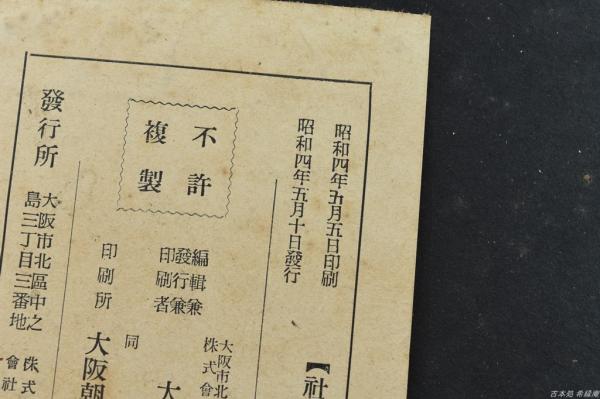 昭和四年五月五日印刷
昭和四年五月十日發行
【社
不許
複製
大阪市北
株式會
編輯兼
發行兼
印刷者
大
同
印刷所
大阪朝
發行所
大阪市北區中之
島三丁目三番地
株式
會社
古本処 希縁庵